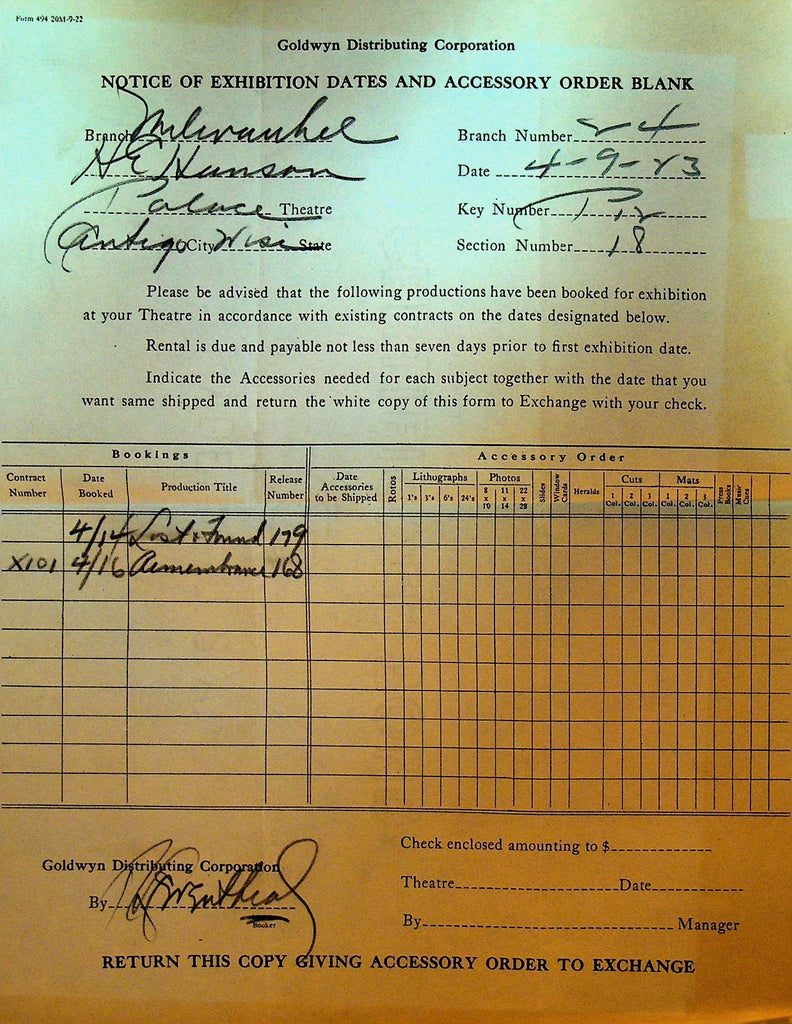 Form 494 20M-9-22
Goldwyn Distributing Corporation
NOTICE OF EXHIBITION DATES AND ACCESSORY ORDER BLANK
Branch Milwaukee Branch Number 24
H E Hanson Date 4-9-23
Palace Theatre Key Number
Antigo City Wisc State Section Number 18
Please be advised that the following productions have been booked for exhibition
at your Theatre in accordance with existing contracts on the dates designated below.
Rental is due and payable not less than seven days prior to first exhibition date.
Indicate the Accessories needed for each subject together with the date that you
want same shipped and return the white copy of this form to Exchange with your check.
Bookings Accessory Order
Contract Number Date Booked Production Title Release Number Date Accessories to be Shipped Rotos Lithographs 1's 3's 6's 24's Photos 8 x 10 11 x 14 22 x 28 Slides Window Cards Heralds Cuts 1 Col. 2 Col. 3 Col. Mats 1 Col. 2 Col. 3 Col. Press Books Music Cues
4/14 Lost & Found 179
X101 4/16 Remembrance 168
Check enclosed amounting to $
Goldwyn Distributing Corporation
Theatre Date
By
Booker
By Manager
RETURN THIS COPY GIVING ACCESSORY ORDER TO EXCHANGE